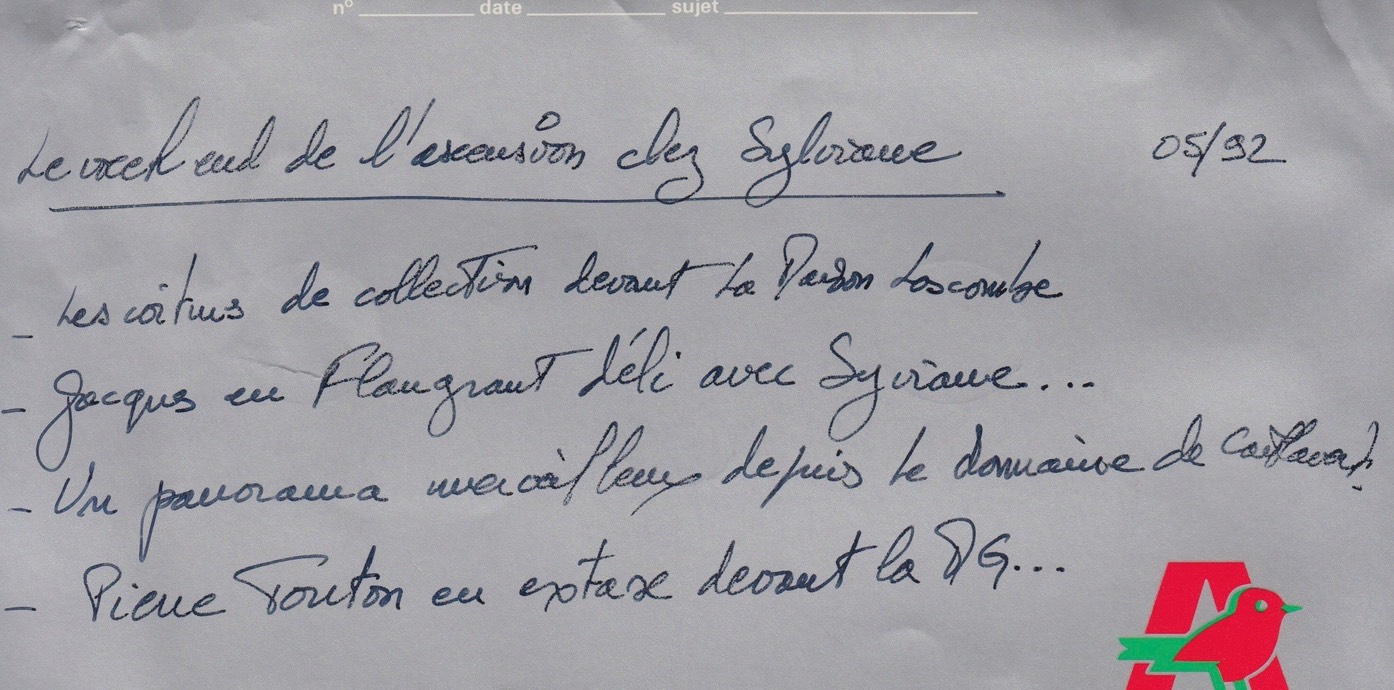 nº date sujet
Le week end de l'ascension chez Sylviane 05/92
- Les voitures de collection devant la Maison Lascombe
- Jacques en Flaugrant déli avec Sylviane...
- Un panorama merveilleux depuis le domaine de
- Pierre Touton en extase devant la MG...
A